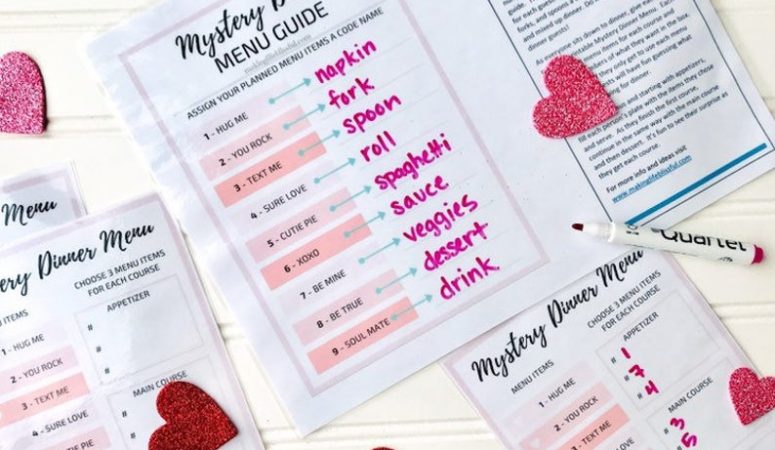 Mystery Dinner
MENU GUIDE
makinglifeblissful.com
ASSIGN YOUR PLANNED MENU ITEMS A CODE NAME
1 - HUG ME napkin
2 - YOU ROCK fork
3 - TEXT ME spoon
4 - SURE LOVE roll
5 - CUTIE PIE spaghetti
6 - XOXO sauce
7 - BE MINE veggies
8 - BE TRUE dessert
9 - SOUL MATE drink
forks, and spoons a
and mixed up dinner. Do
dinner guests!
As everyone sits down to dinner, give
printable Mystery Dinner Menu. Each
menu items for each course and
of what they want in the box.
they only get to use each menu
will have fun guessing what
for dinner.
and starting with appetizers,
fill each person's plate with the items they chose
and serve. As they finish the first course,
continue in the same way with the main course
and then dessert. It's fun to see their surprise as
they get each course.
For more info and ideas visit
www.makinglifeblissful.com
Quartet
Menu
Mystery Dinner Menu
CHOOSE 3 MENU ITEMS
FOR EACH COURSE
ITEMS
1 - HUG ME
2 - YOU ROCK
3 - TEXT ME
4 - SURE LOVE
CUTIE PIE
APPETIZER
#
#
#
MAIN COURSE
#
#
Mystery Dinner Menu
MENU ITEMS
1 - HUG ME
2 - YOU ROCK
3 - TEXT ME
CHOOSE 3 MENU ITEMS
FOR EACH COURSE
APPETIZER
# 1
# 7
# 4
MAIN COURSE
# 3
# 5